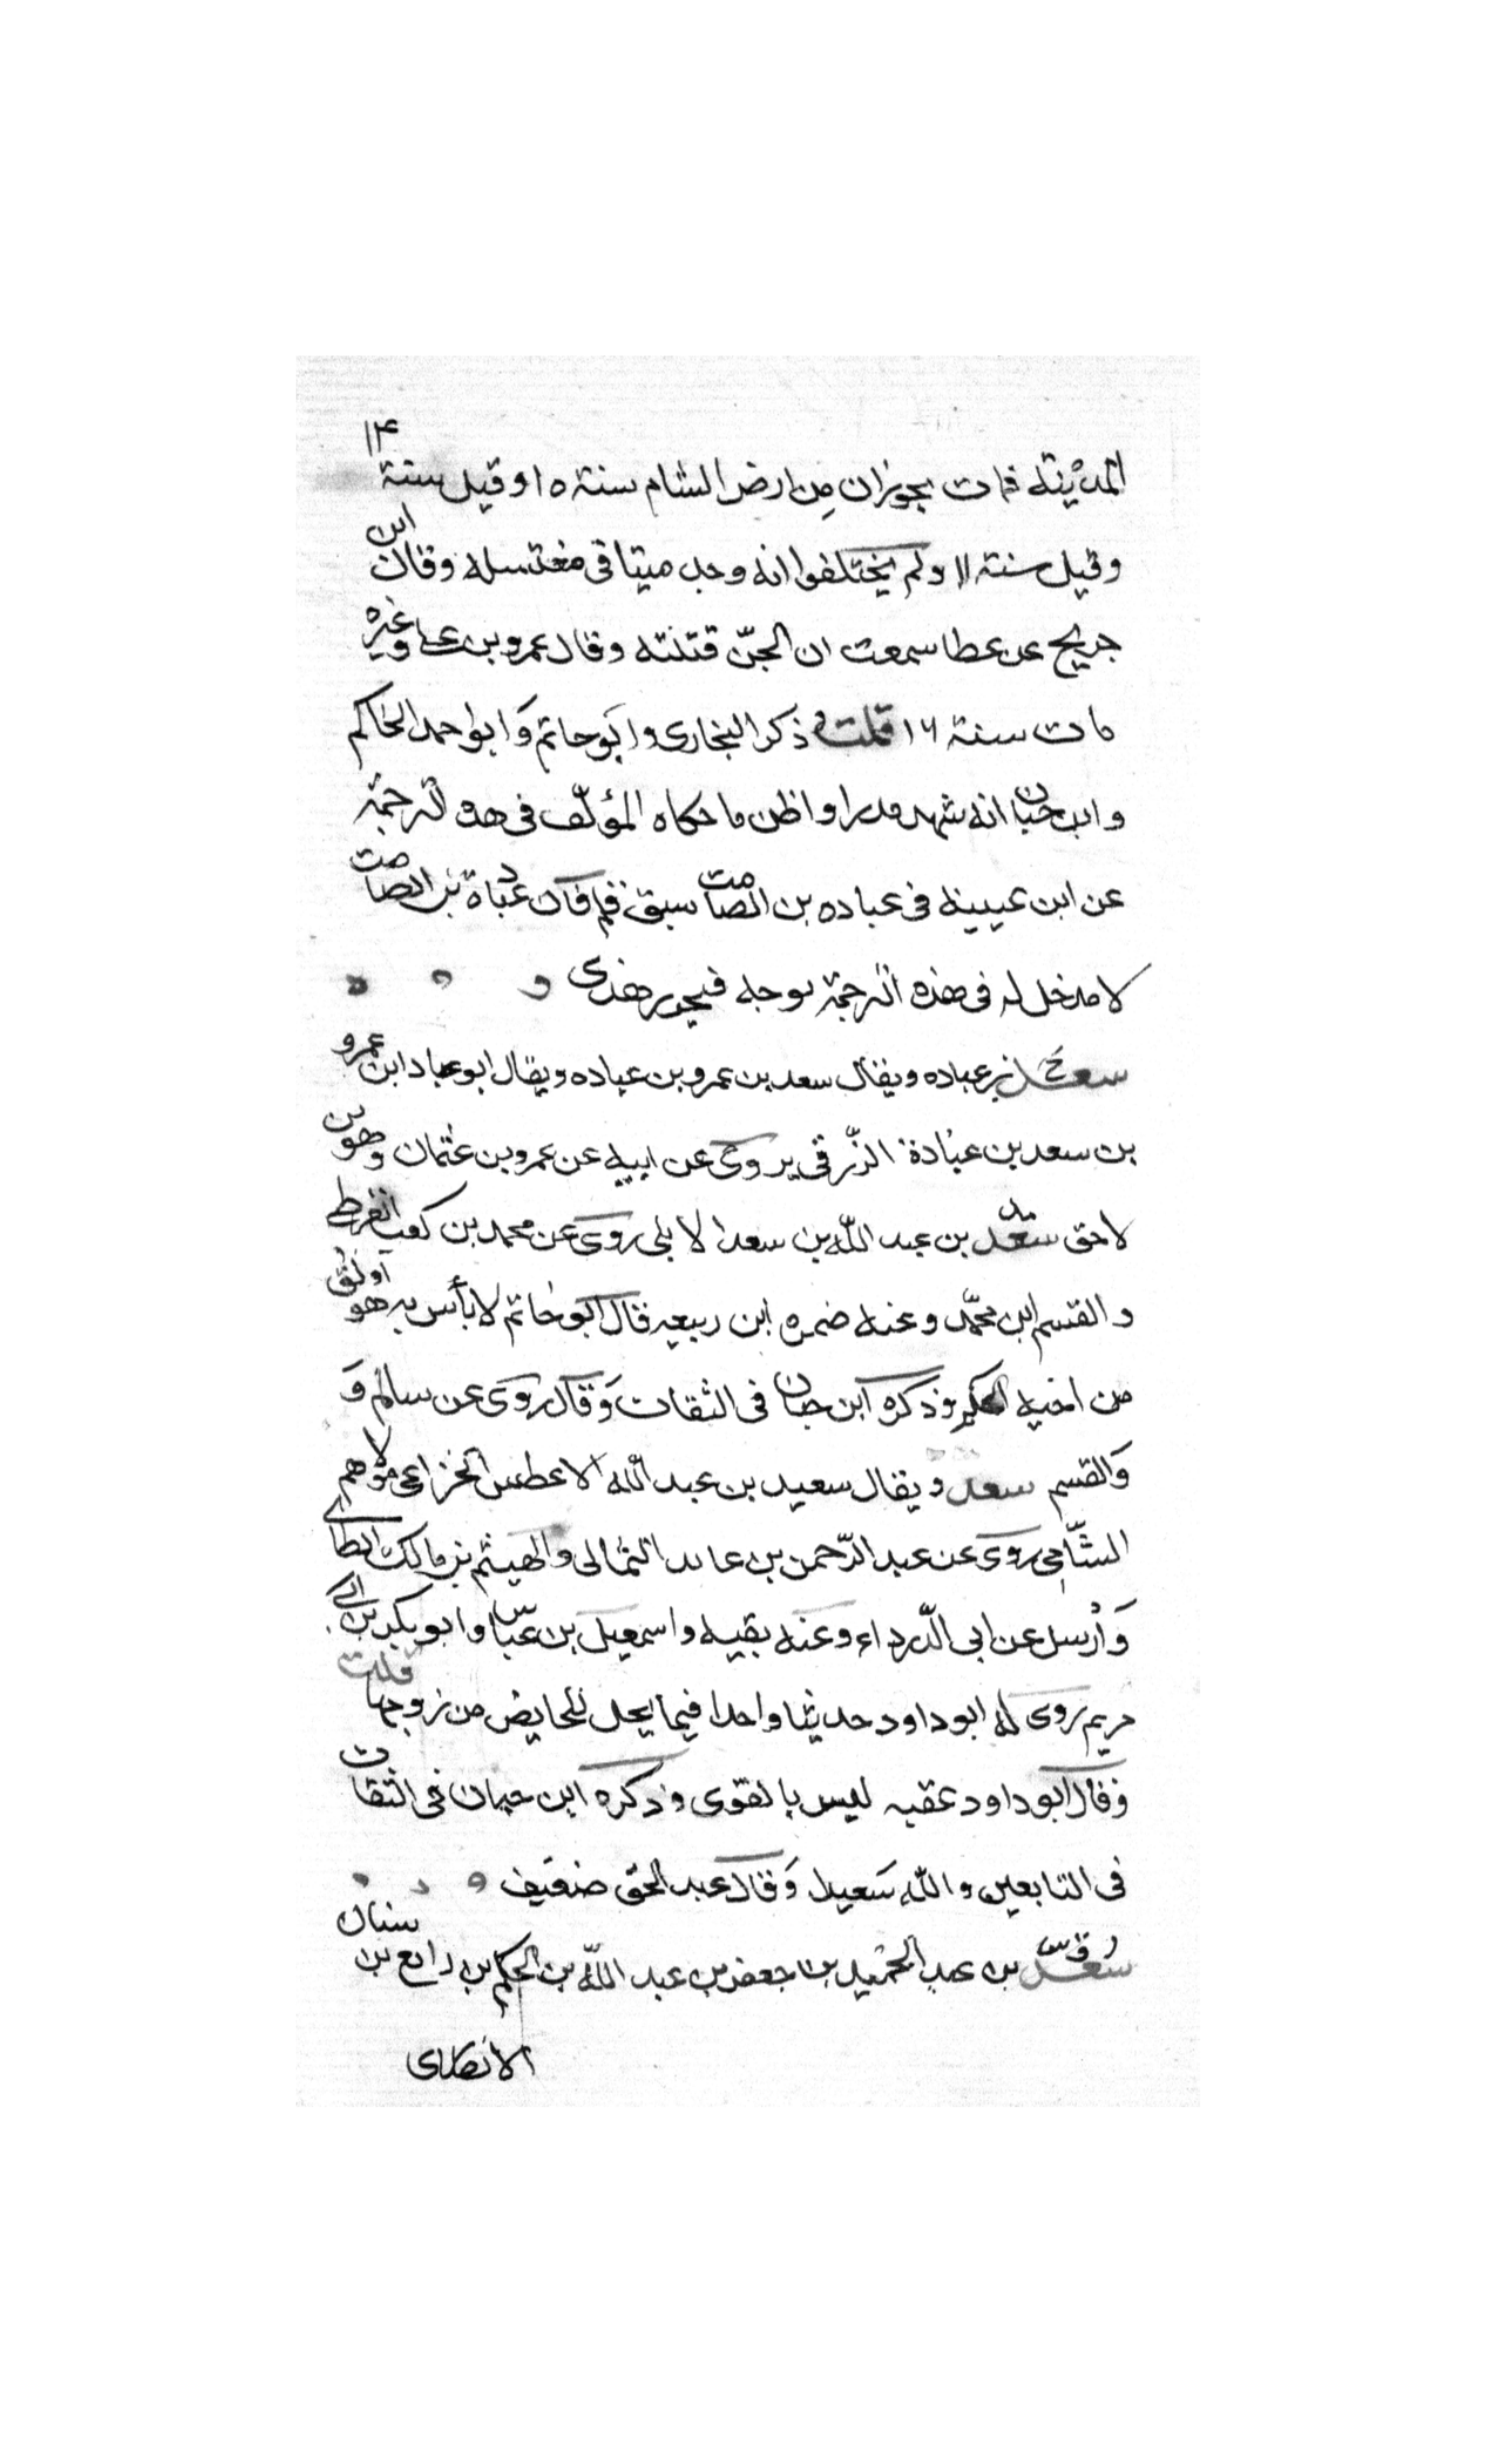 المدينة فمات بحوران من ارض الشام سنة ١٥ وقيل سنة ١٤
وقيل سنة ١١ ولم يختلفوا انه وجد ميتا فى مغتسله وقال ابن
جريج عن عطا سمعت ان الجنّ قتلته وقال عمرو بن على وغيره
مات سنة ١٦ قلت وذكر البخارى وابو حاتم وَابو احمد الحاكم
وابن حبان انه شهد بدرا واظن ما حكاه المؤلّف فى هذه الترجمة
عن ابن عيينه فى عباده بن الصامت سبق قلم فان عبادة بن الصامت
لا مدخل له فى هذه الترجمة بوجه فيحرر هذى
سعد بن عباده ويقال سعد بن عمرو بن عباده ويقال ابو عباد ابن عمرو
بن سعد بن عبادة الزّرقى يروى عن ابيه عن عمرو بن عثمان وهو بن
لاحق سعد بن عبد الله بن سعد الايلى روى عن محمد بن كعب القرظى
والقسم ابن محمّد وعنه ضمره ابن ربيعه قال ابو حاتم لا بأس به هو اوثق
من اخيه الحكم وذكره ابن حبان فى الثقات وَقال روى عن سالم وَ
وَالقسم سعد ويقال سعيد بن عبد الله الاغطس الخزاعى مولاهم
الشّامى روى عن عبد الرّحمن بن عائد الثمالى والهيثم بن مالك الطائى
وَأرسل عن ابى الدّرداء وعنه بقيه واسمعيل بن عيّاس وابو بكر بن ابى
مريم روى له ابو داود حديثا واحدا فيما يحل للحايض من زوجها قلت
وَقال ابو داود عقبه ليس بالقوى وذكره ابن حبان فى الثقات
فى التابعين والله سَعيد وَقال عبد الحق ضعَيف
سعد بن عبد الحميد بن جعفر بن عبد الله بن الحكم بن رافع بن سنان
الانصارى